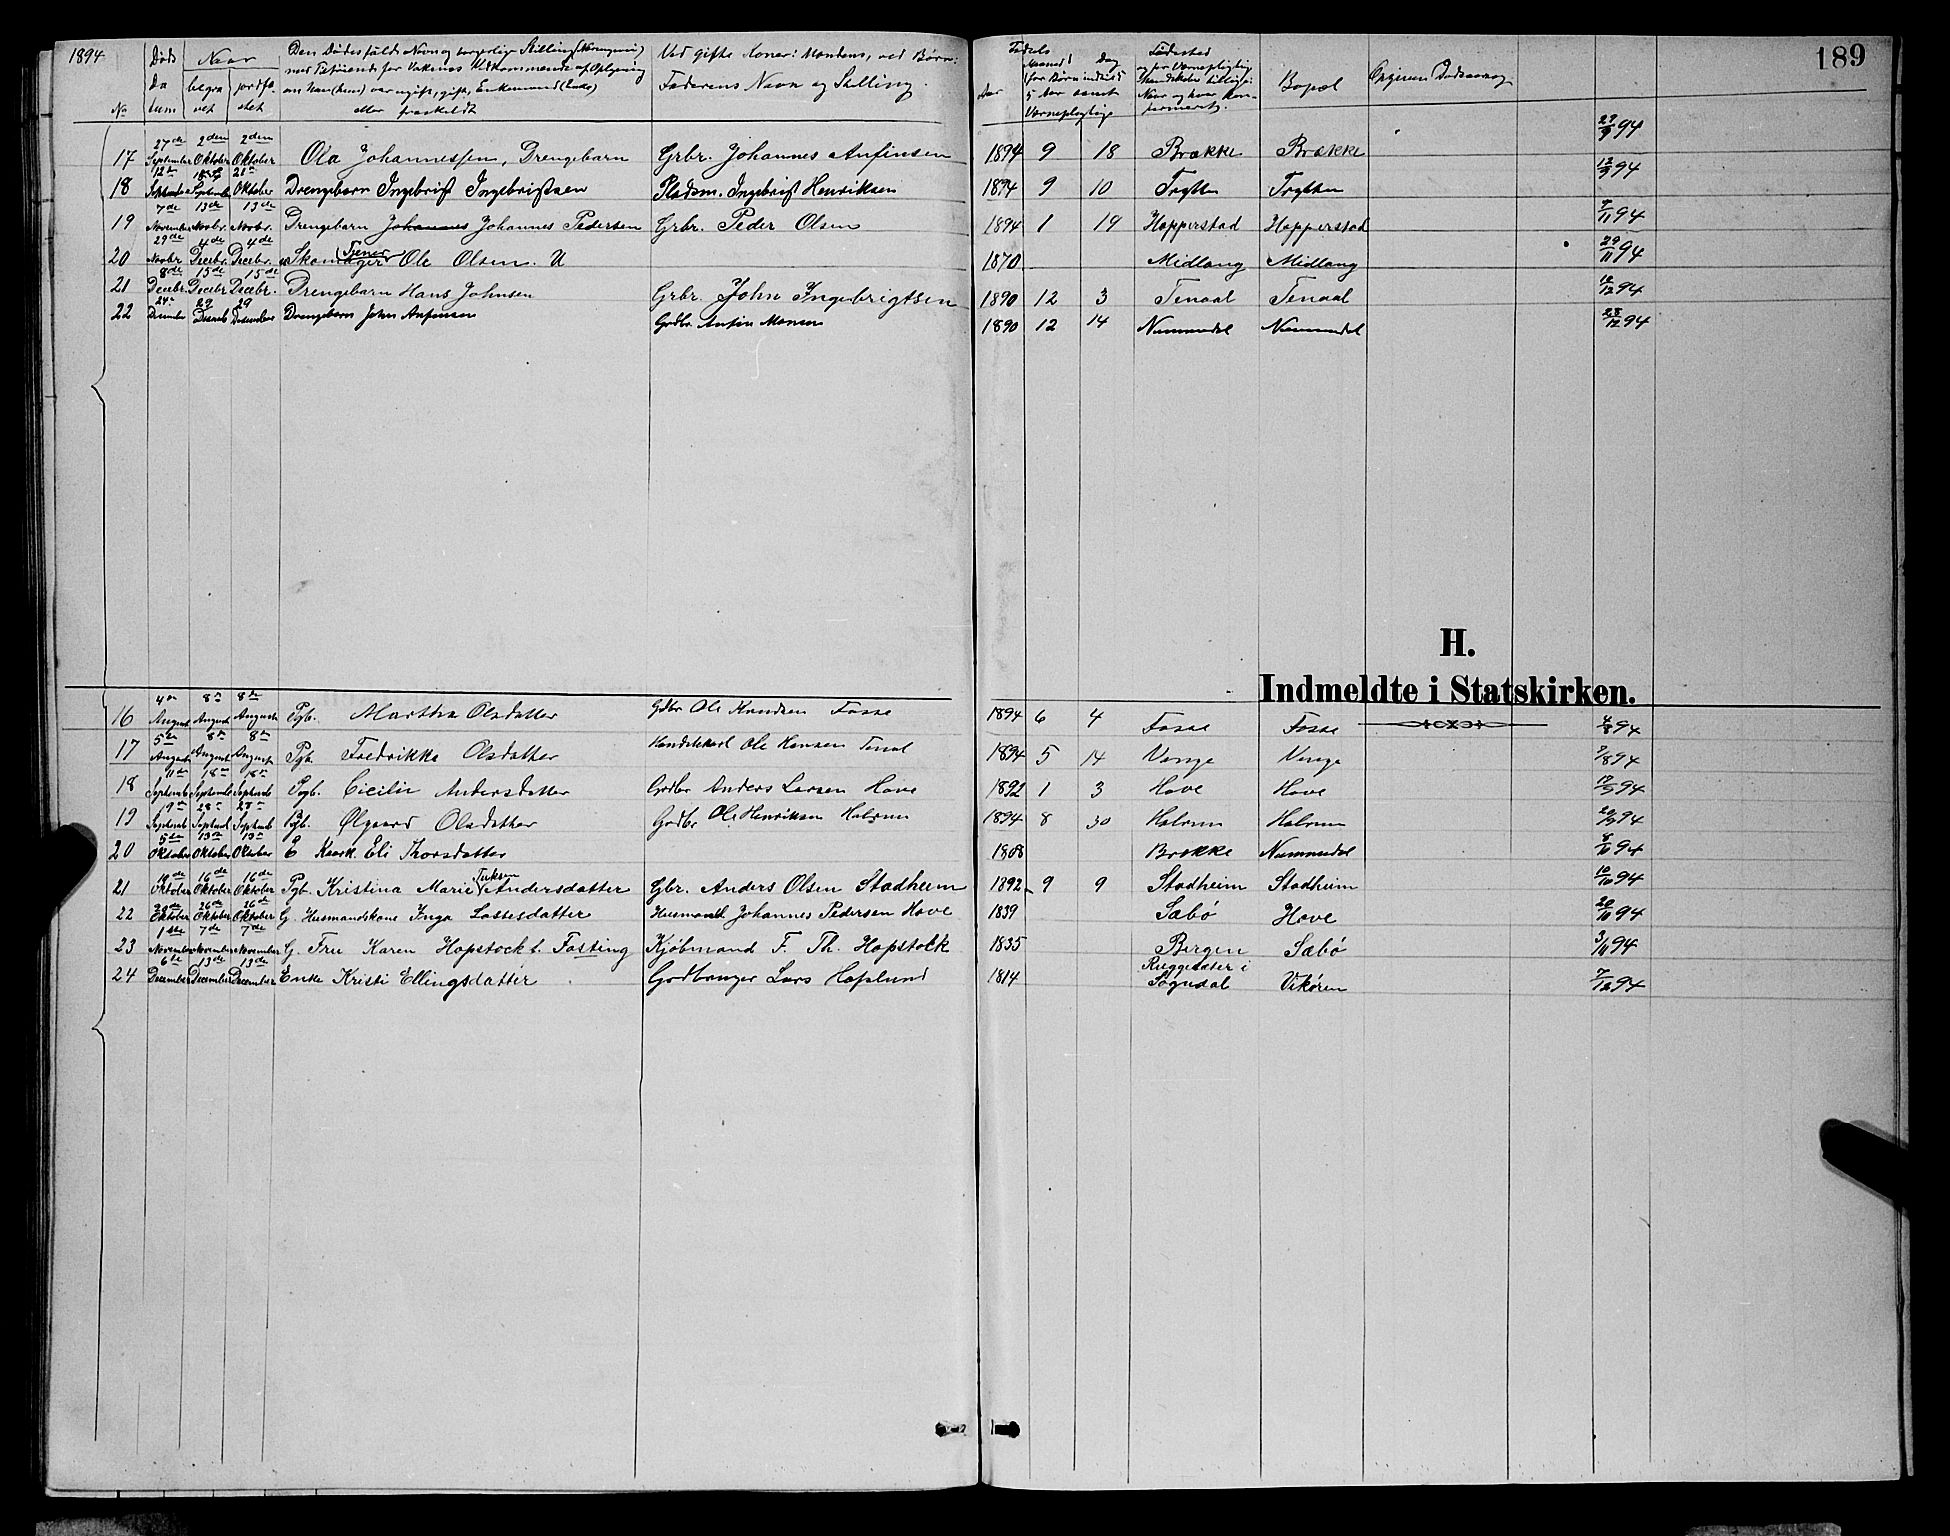 1894
189
Døds Datum
Naar
begravet
jordfæstet
No
Den Dødes fulde Navn og borgerlige Stilling
om han (hun) var ugift, gift, Enkemand (Enke) eller fraskildt
Ved gifte Koner: Mandens, ved Børn: Faderens Navn og Stilling.
Fødsels
Aar
Maaned
Dag
(for Børn indtil 5 Aar samt Værnepligtige
Fødested
Bopæl
Opgiven Dødsaarsag
17 27de September 2den Oktober 2den Oktober Ola Johannessen, Drengebarn Grbr. Johannes Anfinsen 1894 9 18 Brække Brække 29/9 94
18 12te September September 21de Oktober Drengebarn Ingebrigt Ingebrigtsen Pladsm. Ingebrigt Henriksen 1894 9 10 Trytten Trytten 13/9 94
19 7de November 13de Novbr. 13de Novbr. Drengebarn Johannes Johannes Pedersen Grbr. Peder Olsen 1894 1 19 Hopperstad Hopperstad 9/11 94
20 29de Novbr 4de Decbr. 4de Decbr. Skomager Tjener Ole Olsen. U 1870 Midlang Midlang 29/11 94
21 8de Decbr. 15de Decbr. 15de Decbr. Drengebarn Hans Johnsen Grbr. John Ingebrigtsen 1890 12 3 Tenaal Tenaal 10/12 94
22 24de December 29 Decemb 29 December Drengebarn John Anfinsen Grdbr. Anfin Monsen 1890 12 14 Nummedal Nummedal 28/12 94
H.
Indmeldte i Statskirken.
16 4de August 8de August 8de August Pgb. Martha Olsdatter Gdbr Ole Knudsen Fosse 1894 6 4 Fosse Fosse 4/8 94
17 5te August 8de August 8de August Pgb. Fredrikke Olsdatter Handelskarl Ole Hansen Tenal 1894 5 14 Vange Vange 7/8 94
18 11te Septemb 18de Septemb 18de Septemb Pgb. Cicilie Andersdatter Grdbr Anders Larsen Hove 1892 1 3 Hove Hove 12/9 94
19 19de Septemb 28de Septemb 28de Septemb Pgb. Ølgaard Olsdatter Grdbr Ole Henriksen Halsum 1894 8 30 Halsum Halsum 20/9 94
20 5te Oktober 13de Oktober 13de Oktober E Kaark. Eli Thorsdatter 1808 Brække Nummedal 8/10 94
21 10de Oktober 16de Oktober 16de Oktober Pgb. Kristina Marie Tuksen Andersdatter Gbr. Anders Olsen Stadheim 1892 9 9 Stadheim Stadheim 10/10 94
22 20de Oktober 26de Oktober 26de Oktober G. Husmandskone Inga Lassesdatter Husmand Johannes Pedersen Hove 1839 Sæbø Hove 20/10 94
23 1ste November 7de November 7de November G. Frue Karen Hopstock f. Fasting Kjøbmand F. Th. Hopstock 1835 Bergen Sæbø 3/11 94
24 6te December 13de December 13de December Enke Kristi Ellingsdatter Grdbruger Lars Hoplund 1814 Sogndal Vikøren 7/12 94